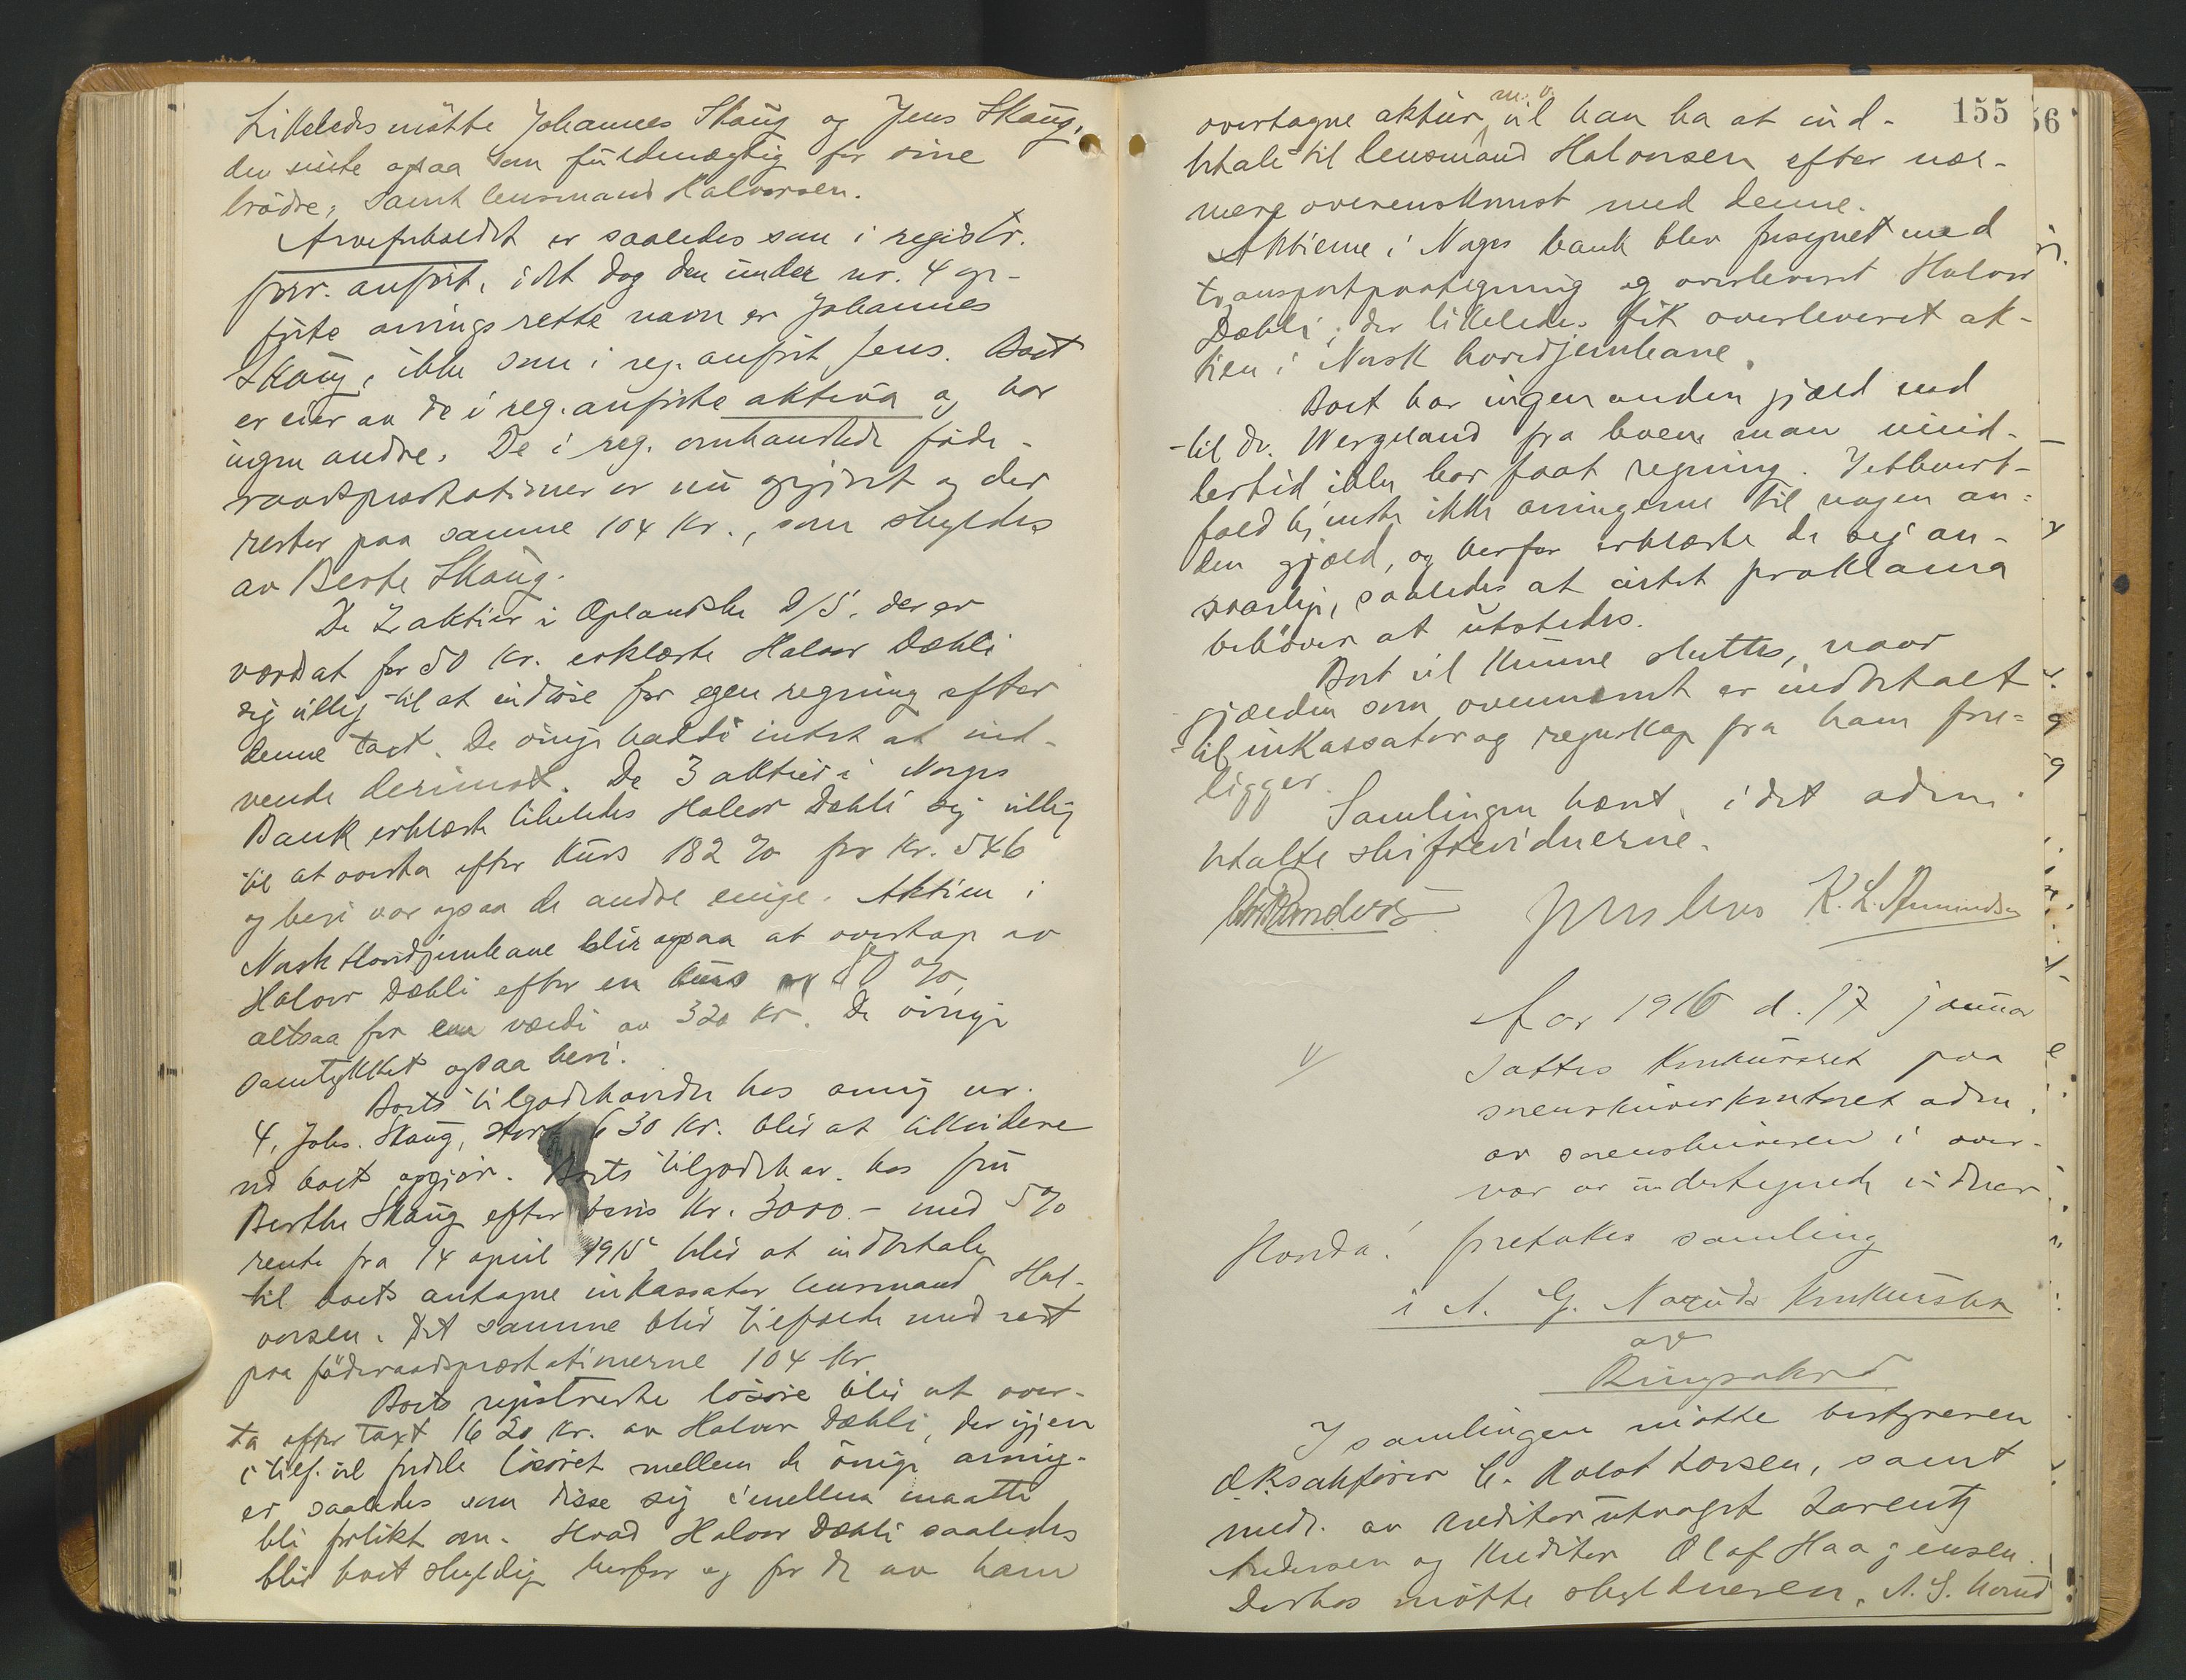 Likeledes møtte Johannes Skaug og Jens Skaug,
den siste ogsaa som fuldmægtig for sine
brødre, samt lensmand Halvorsen.
Arveforholdet er saaledes som i registr.
forr. anført, idet dog den under nr. 4 op-
førte arvings rette navn er Johannes
Skaug, ikke som i reg. anført Jens. Boet
er eier av de i reg. anførte aktiva og har
ingen andre. De i reg. omhandlede føde-
raadspræstationer er nu opgjort og der
rester paa samme 104 kr., som skyldes
av Berte Skaug.
De 2 aktier i Oplandske D/S. der er
værdsat for 50 kr. erklærte Halvor Dæhli
sig villig til at indløse for egen regning efter
denne taxt. De øvrige hadde intet at ind-
vende derimot. De 3 aktier i Norges
Bank erklærte likeledes Halvor Dæhli sig villig
til at overta efter kurs 182 % for kr. 546
og heri var ogsaa de andre enige. Aktien i
Norsk Hovedjernbane blir ogsaa at overtage av
Halvor Dæhli efter en kurs av 80 %,
altsaa for en værdi av 320 kr. De øvrige
samtykket ogsaa heri.
Boets tilgodehavende hos arving nr.
4, Johs. Skaug, stort 630 kr. blir at likvidere
ved boets opgjør. Boets tilgodehav. hos fru
Berthe Skaug efter bevis kr. 3000.- med 5 %
rente fra 14 april 1915 blir at indbetale
til boets antagne inkassator lensmand Hal-
vorsen. Det samme blir tilfælde med rest
paa føderaadspræstationerne 104 kr.
Boets registrerte løsøre blir at over-
ta efter taxt 1620 kr. av Halvor Dæhli, der igjen
i tilf. vil fordele løsøret mellem de øvrige arving-
er saaledes som disse sig imellem maatte
bli forlikt om. Hvad Halvor Dæhli saaledes
blir boet skyldig herfor og for de av ham
155
56
overtagne aktier m.v. vil han ha at ind-
betale til lensmand Halvorsen efter nær-
mere overenskomst med denne.
Aktierne i Norges bank blev forsynet med
transportpaategning og overleveret Halvor
Dæhli, der likeledes fik overleveret ak-
tien i Norsk hovedjernbane.
Boet har ingen anden gjæld end
til dr. Wergeland fra hvem man imid-
lertid ikke har faat regning. I ethvert-
fald kjendte ikke arvingerne til nogen an-
den gjæld, og herfor erklærte de sig an-
svarlige, saaledes at intet proklama
behøver at utstedes.
Boet vil kunne sluttes, naar
gjælden som ovennævnt er indbetalt
til inkassator og regnskap fra ham fore-
ligger.
Samlingen hævet, idet adm.
betalte skiftevidnerne.
K. L. Amundsen
Aar 1916 d. 17 januar
sattes konkursret paa
sorenskriverkontoret adm.
av sorenskriveren i over-
vær av undertegnede vidner.
Hvorda: foretokes samling
i A. G. Norüds konkursbo
av
Ringsaker
I samlingen møtte bestyreren
O.R.sakfører C. Rolst Larsen, samt
medl. av kreditorutvalget Lorentz
Andersen og kreditor Olaf Haagensen.
Derhos møtte skyldneren, A. G. Norud